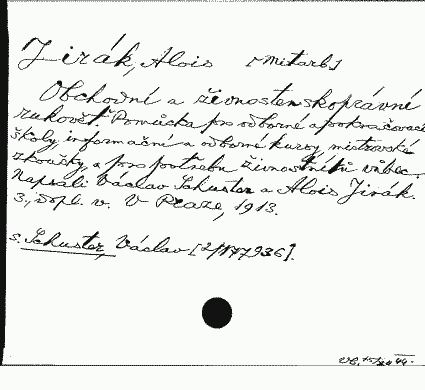 Jirák, Alois [Mitarb.]
Obchodní a živnostenskoprávní
rukověť. Pomůcka pro odborné a pokračovací
školy, informační a odborné kursy, mistrovské
zkoušky, a pro potřebu živnostníků vůbec.
Napsali Václav Schuster a Alois Jirák.
3., dopl. v. V Praze, 1913.
s. Schuster, Václav [2/177936].